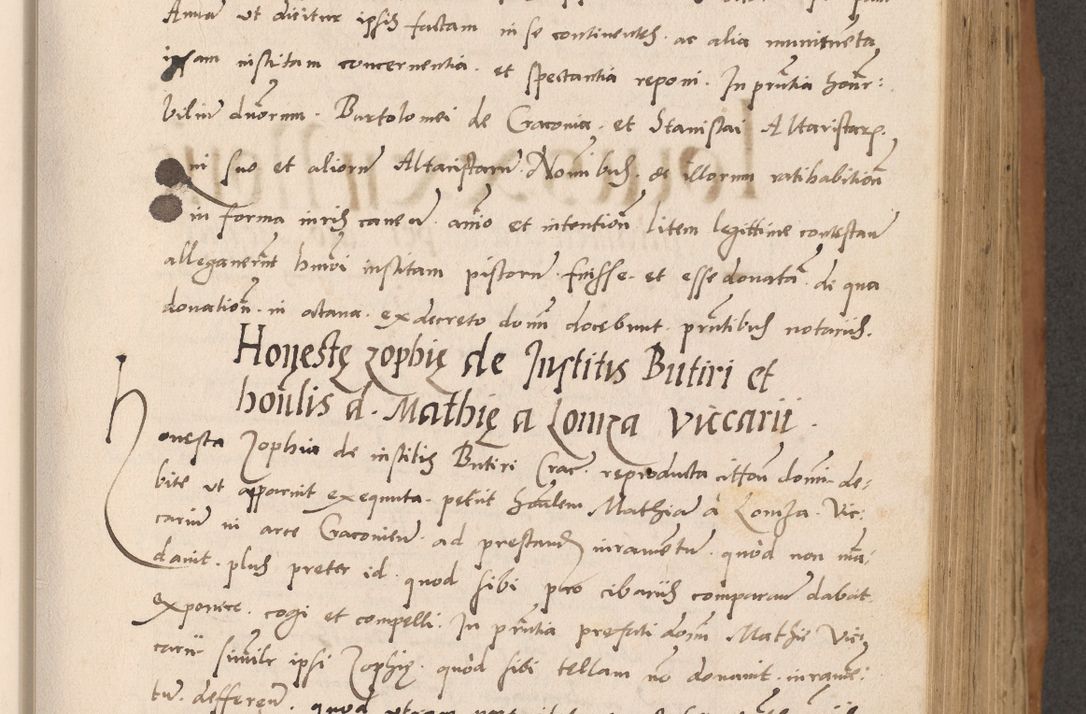 Annae ut dicitur ipsis factam in se continentes. ac alia munimenta
ipsam institam concernentia. et spectantia reponi. In pntia honor:
biliu duorum. Bartolomei de Cracovia. et Stanislai Altaristarz.
ni suo et aliorum Altaristaru Nominibus. de illorum ratihabition
in forma iuris cavere. animo et intention litem legittime contestan
allegaverunt hmoi institam pistoru fuisse. et esse donatā. de qua
donation. in actana. ex decreto domini docebunt. pntibus notariis.
Honeste zophie de Institis Butiri et
honlis d. Mathie a Lomza Viccarii.
Honesta Zophia de institis Butiri Crac. reproducta citton domini de:
bite ut apparuit exequuta. petiit honlem Mathia a Lomza. Vic:
cariu in arce Cracovien. ad prestand iuramentu. quod non mā:
davit. plus preter id. quod sibi pro cibariis comparan dabat
exponere. cogi et compelli. In pntia prefati domini Mathie Vic:
carii simile ipsi Zophie. quod sibi tellam no donavit. iurame:
tu. defferen. quod